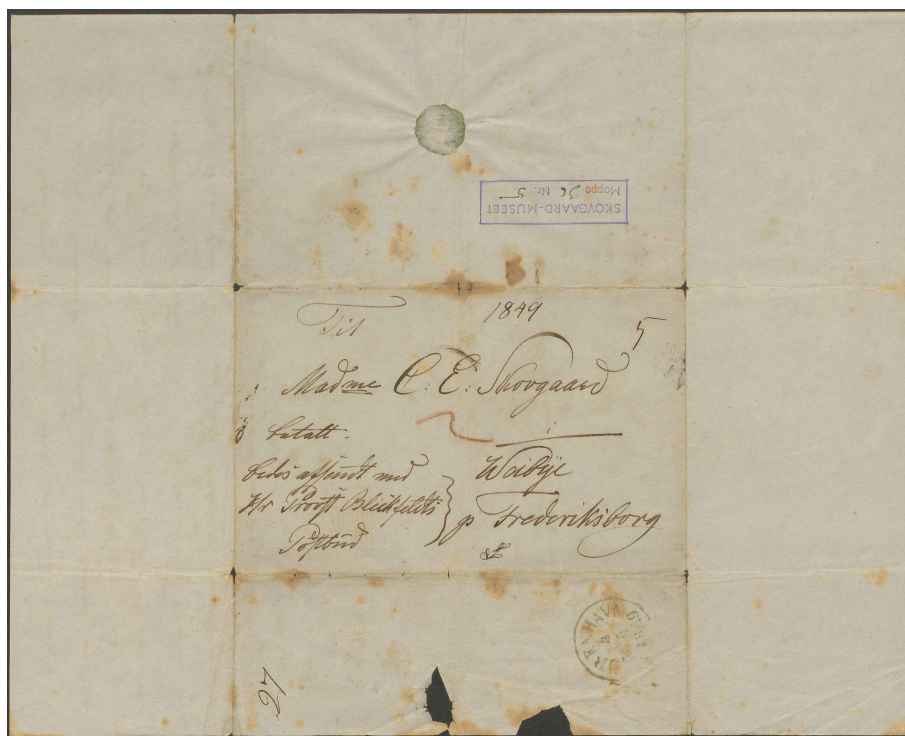 SKOVGAARD-MUSEET
Mappe 36 Nr. 5
1849
5
Til
Madme C: E: Skovgaard
betalt.
i
Bedes afsendt med
Hr Provst Blickfeldts
Postbud
Weibye
p Frederiksborg
27